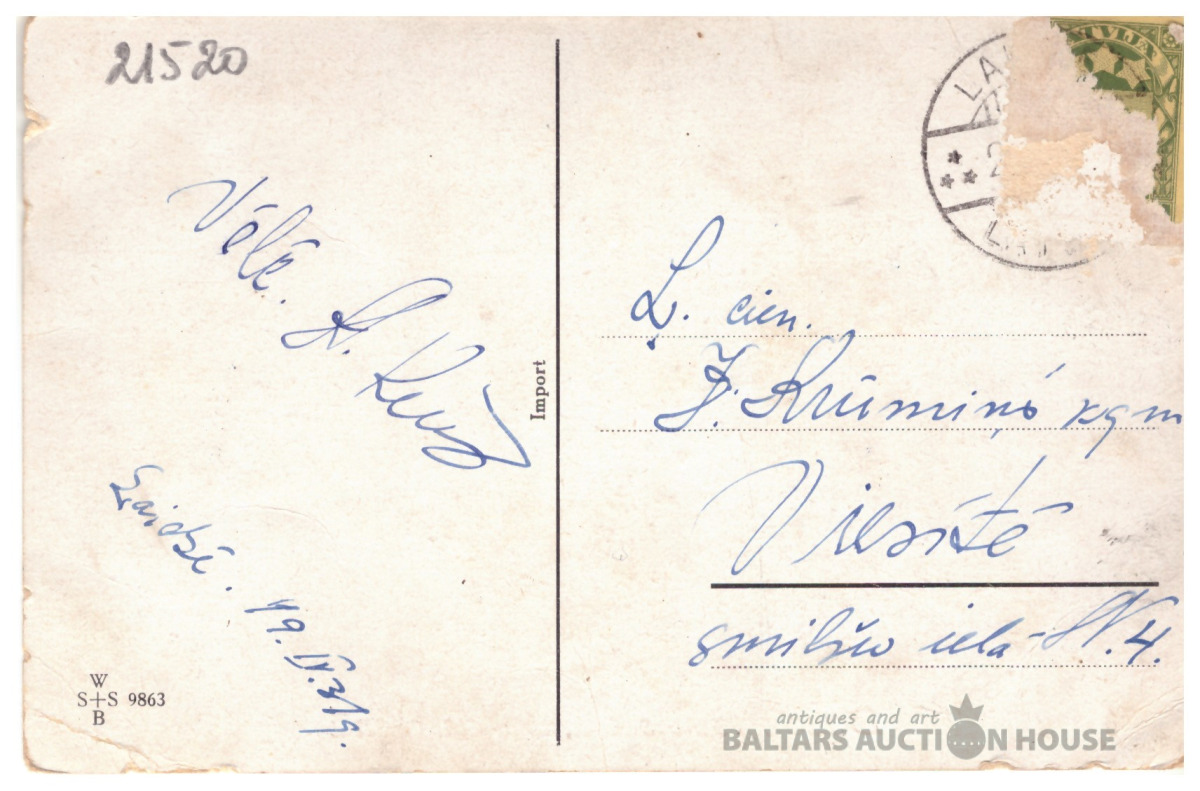 21520
Vēlē. A.
19. IV. 319.
W
S+S 9863
B
Import
LA
2
LAT
TVIJA
Ļ. cien.
J. Krūmiņš kgm
Viesītē
smilšu iela - N. 4.
antiques and art
BALTARS AUCTION HOUSE